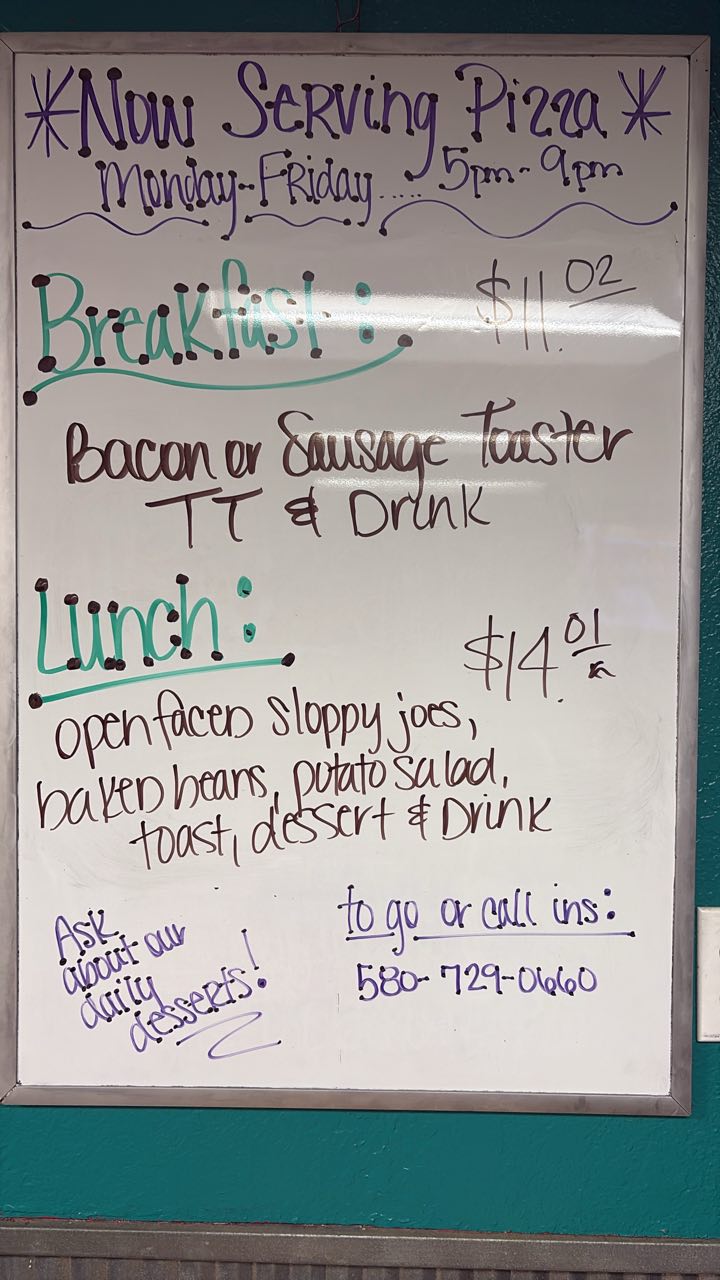 *Now Serving Pizza*
Monday-Friday.... 5pm-9pm
Breakfast: $11.02
Bacon or Sausage Toaster
TT & Drink
Lunch: $14.01
open faced sloppy joes,
baked beans, potato salad,
toast, dessert & Drink
Ask
about our
daily
desserts!
to go or call ins:
580-729-0660